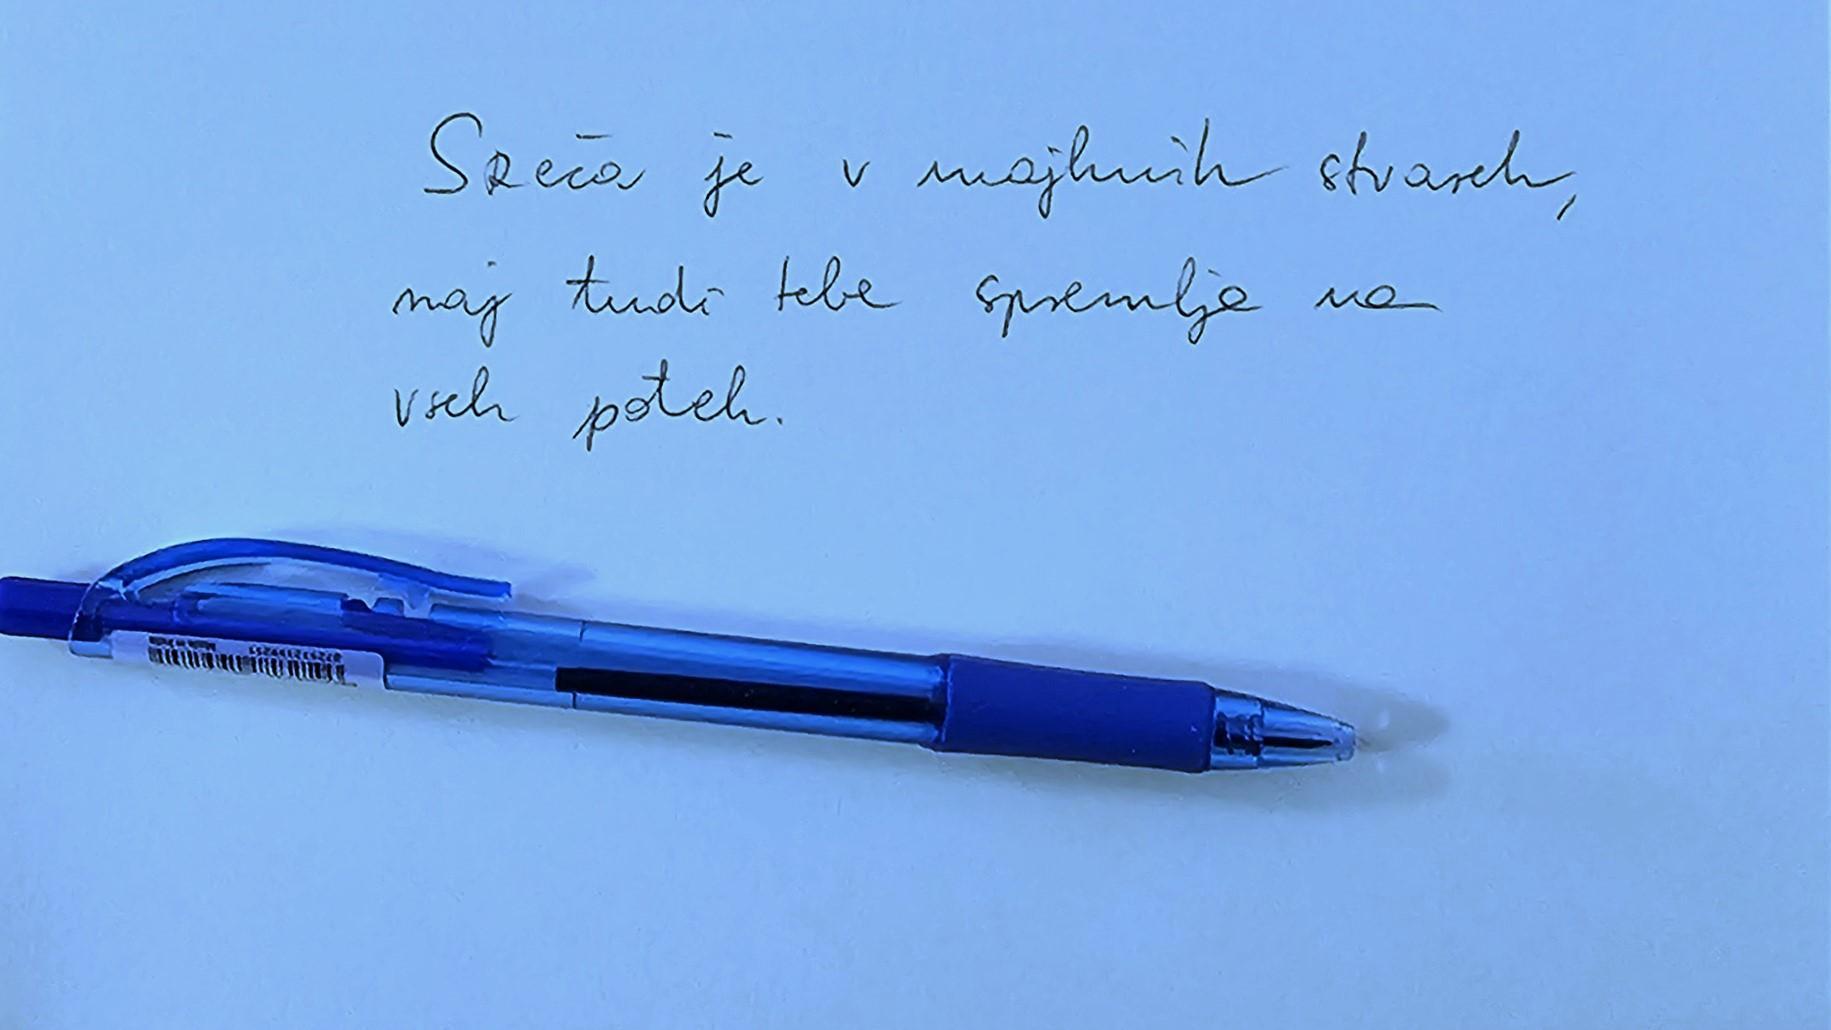 Sreča je v majhnih stvareh,
naj tudi tebe spremlja na
vseh poteh.